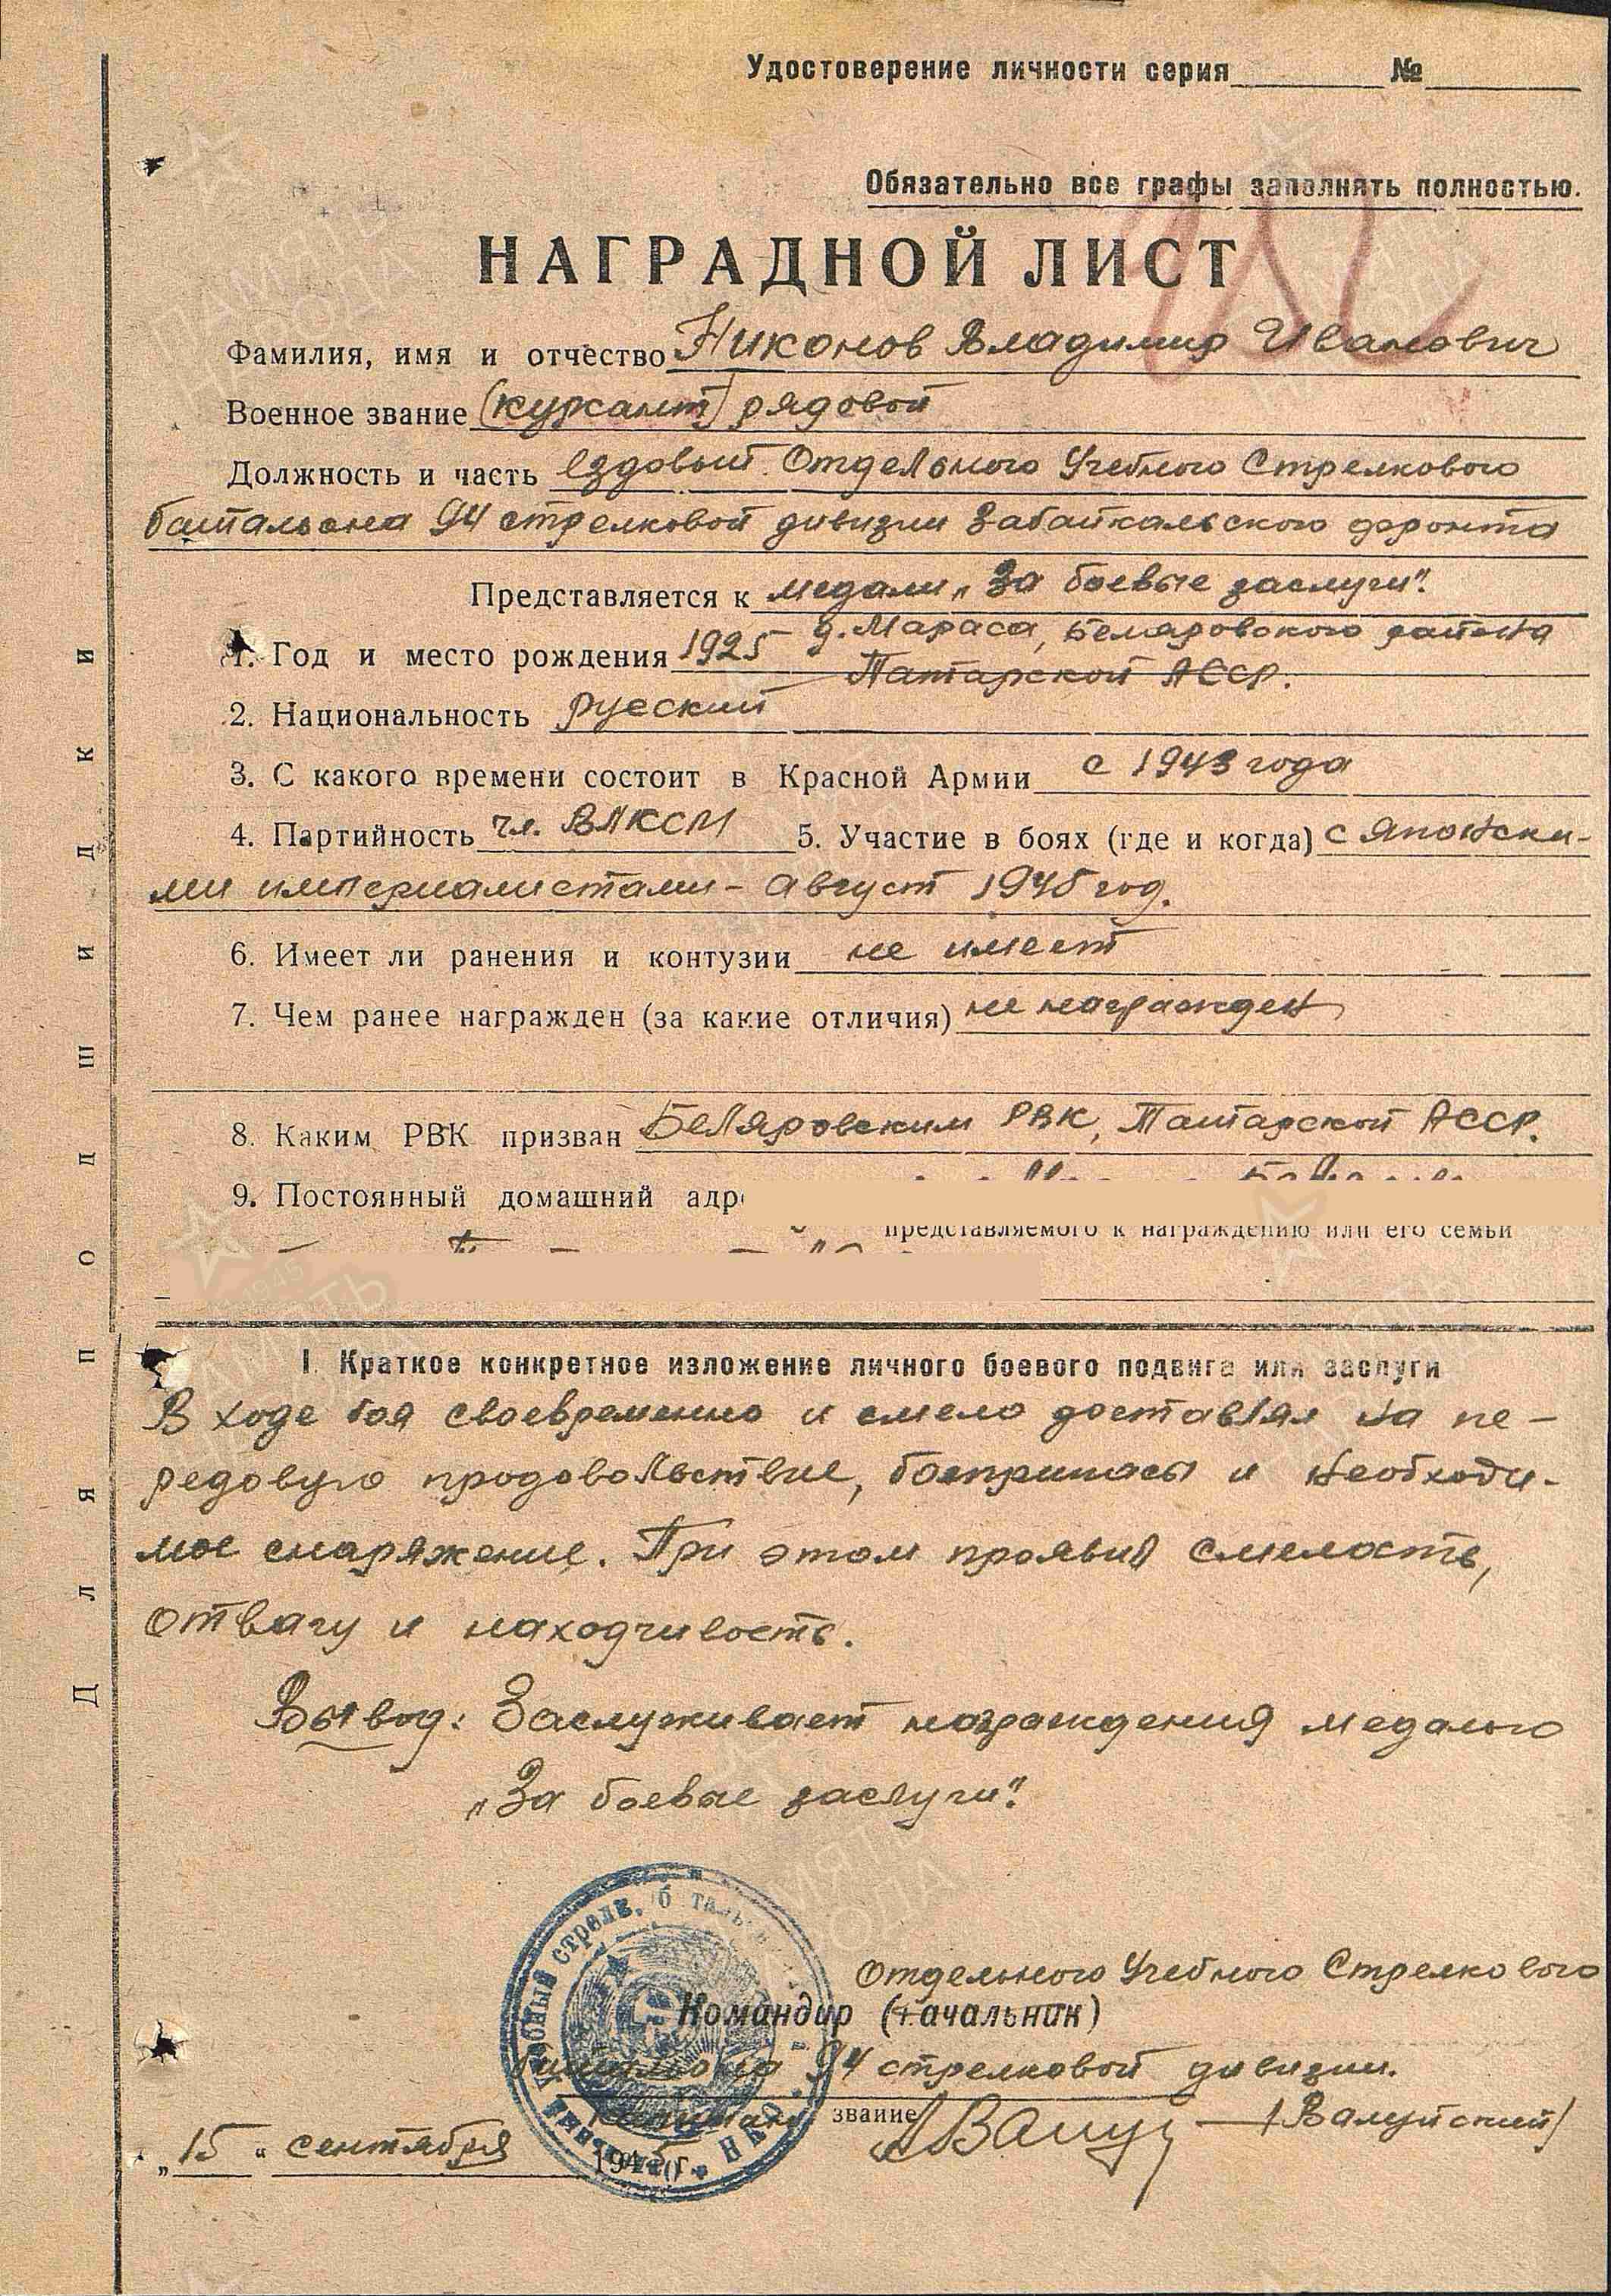 Удостоверение личности серия № 
Обязательно все графы заполнять полностью.
НАГРАДНОЙ ЛИСТ
Фамилия, имя и отчество Никонов Владимир Иванович
Военное звание (курсант) рядовой
Должность и часть ездовый Отдельного Учебного Стрелкового
батальона 94 стрелковой дивизии Забайкальского фронта
Представляется к медали „За боевые заслуги".
1. Год и место рождения 1925 д. Мараса, Беляровского района
Татарской АССР.
2. Национальность русский
3. С какого времени состоит в Красной Армии с 1943 года
4. Партийность чл. ВЛКСМ 5. Участие в боях (где и когда) с японски-
ми империалистами - август 1945 год.
6. Имеет ли ранения и контузии не имеет
7. Чем ранее награжден (за какие отличия) не награжден
8. Каким РВК призван Беляровским РВК, Татарской АССР.
9. Постоянный домашний адр
представляемого к награждению или его семьи
I. Краткое конкретное изложение личного боевого подвига или заслуги
В ходе боя своевременно и смело доставлял на пе-
редовую продовольствие, боеприпасы и необходи-
мое снаряжение. При этом проявил смелость,
отвагу и находчивость.
Вывод: Заслуживает награждения медалью
„За боевые заслуги".
Отдельного Учебного Стрелкового
Командир (начальник)
батальона 94 стрелковой дивизии.
капитан звание (Валуйский)
„15" сентября 1945 г.
Для подшивки
ПАМЯТЬ НАРОДА